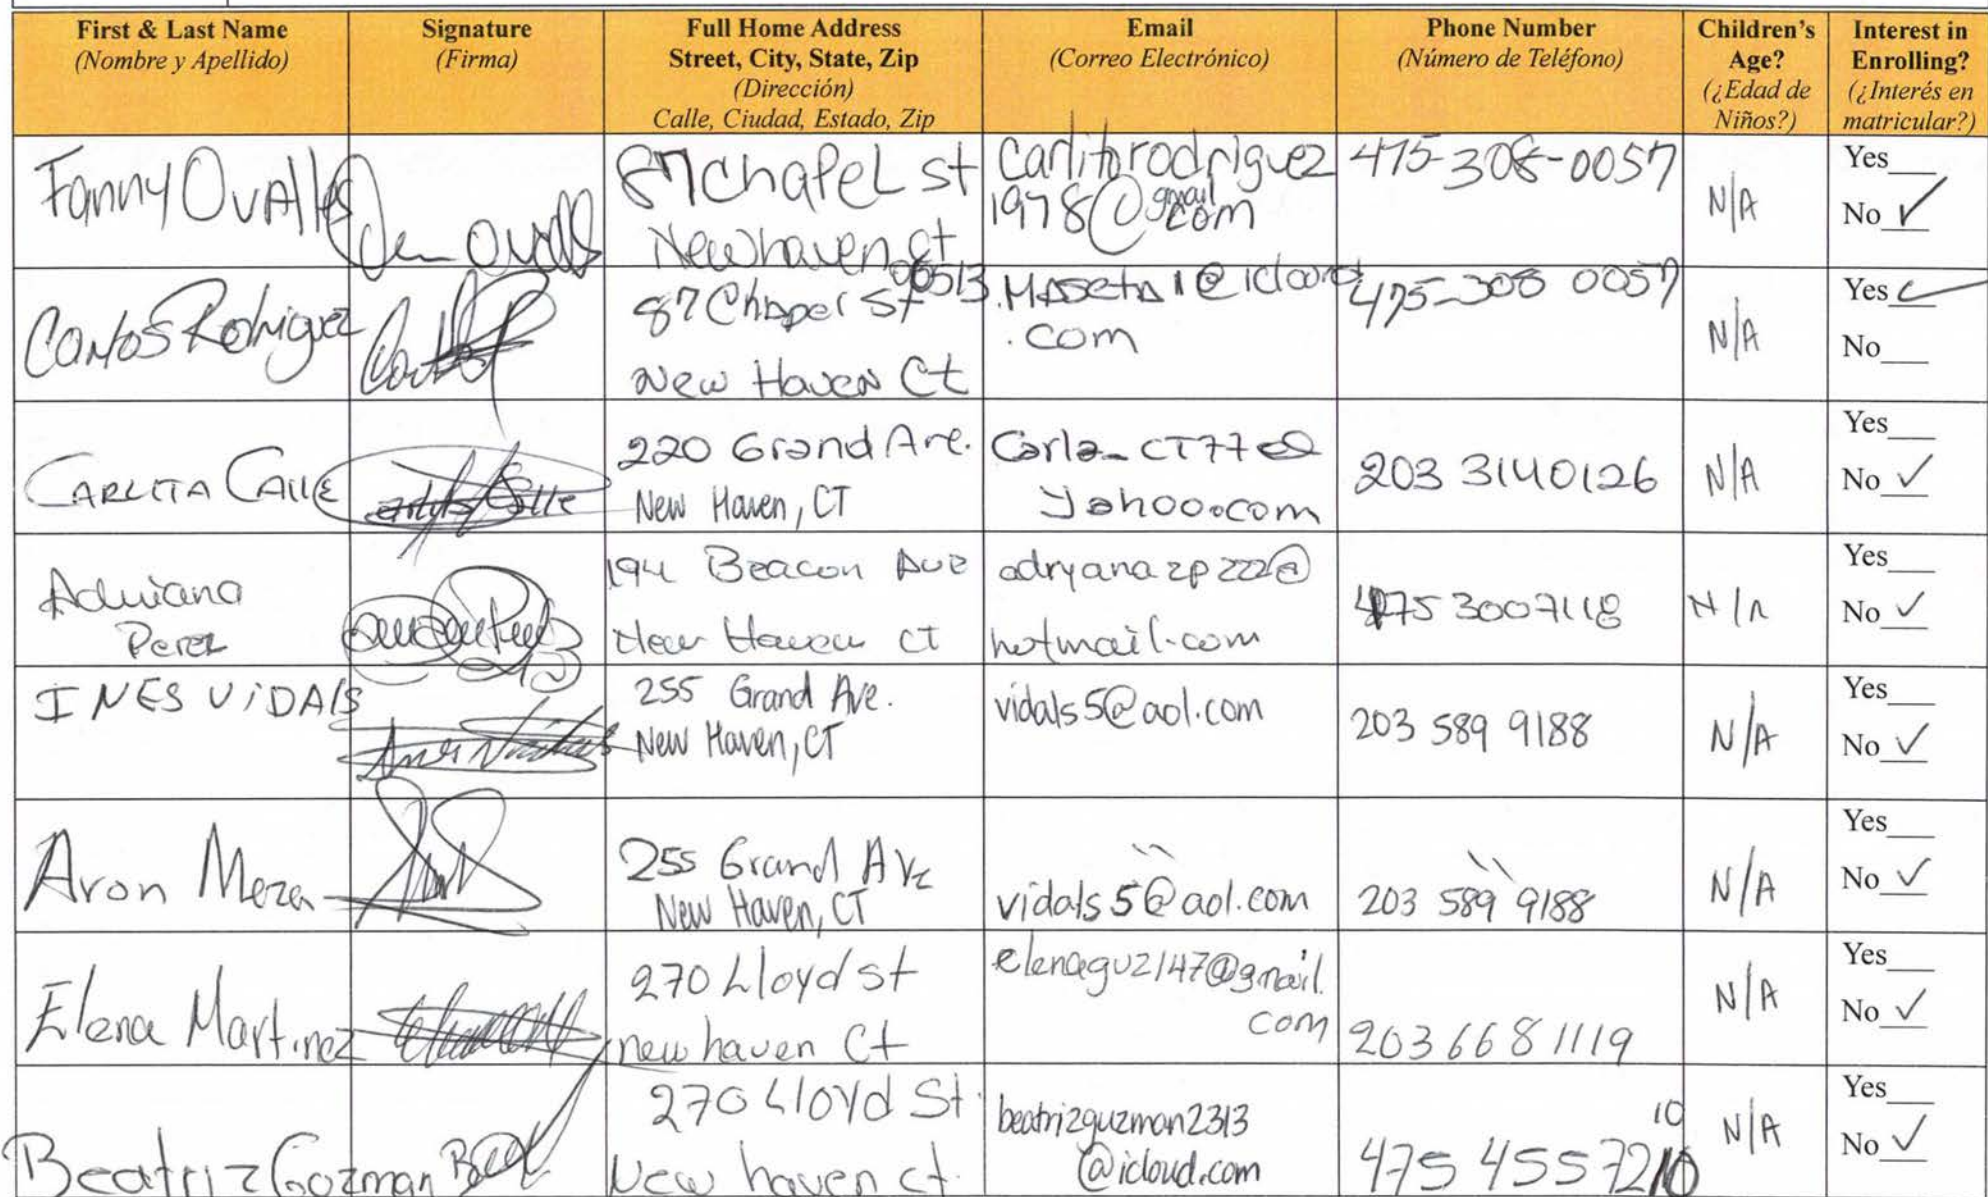 First & Last Name
(Nombre y Apellido)
Signature
(Firma)
Full Home Address
Street, City, State, Zip
(Dirección)
Calle, Ciudad, Estado, Zip
Email
(Correo Electrónico)
Phone Number
(Número de Teléfono)
Children's
Age?
(¿Edad de
Niños?)
Interest in
Enrolling?
(¿Interés en
matricular?)
Fanny Ovalles
87 Chapel st
Newhaven ct
06513
Carlitorodriguez
1978@gmail
.com
475-308-0057
N/A
Yes
No ✓
Carlos Rodriguez
87 Chapel St
New Haven Ct
MASETA1@icloud
.com
475-308 0057
N/A
Yes ✓
No
CARLITA CALLE
220 Grand Ave.
New Haven, CT
Carla_CT77@
Yahoo.com
203 3140126
N/A
Yes
No ✓
Adriana
Perez
194 Beacon Ave
New Haven CT
adryanazpzzz@
hotmail.com
475 3007118
N/A
Yes
No ✓
INES ViDAlS
255 Grand Ave.
New Haven, CT
vidals5@aol.com
203 589 9188
N/A
Yes
No ✓
Aron Meza
255 Grand Ave
New Haven, CT
vidals5@aol.com
203 589 9188
N/A
Yes
No ✓
Elena Martinez
270 Lloyd st
new haven Ct
elenaguz147@gmail.
com
203 668 1119
N/A
Yes
No ✓
Beatriz Gozman
270 Lloyd St.
New haven ct.
beatrizguzman2313
@icloud.com
475 455 7210
10
N/A
Yes
No ✓